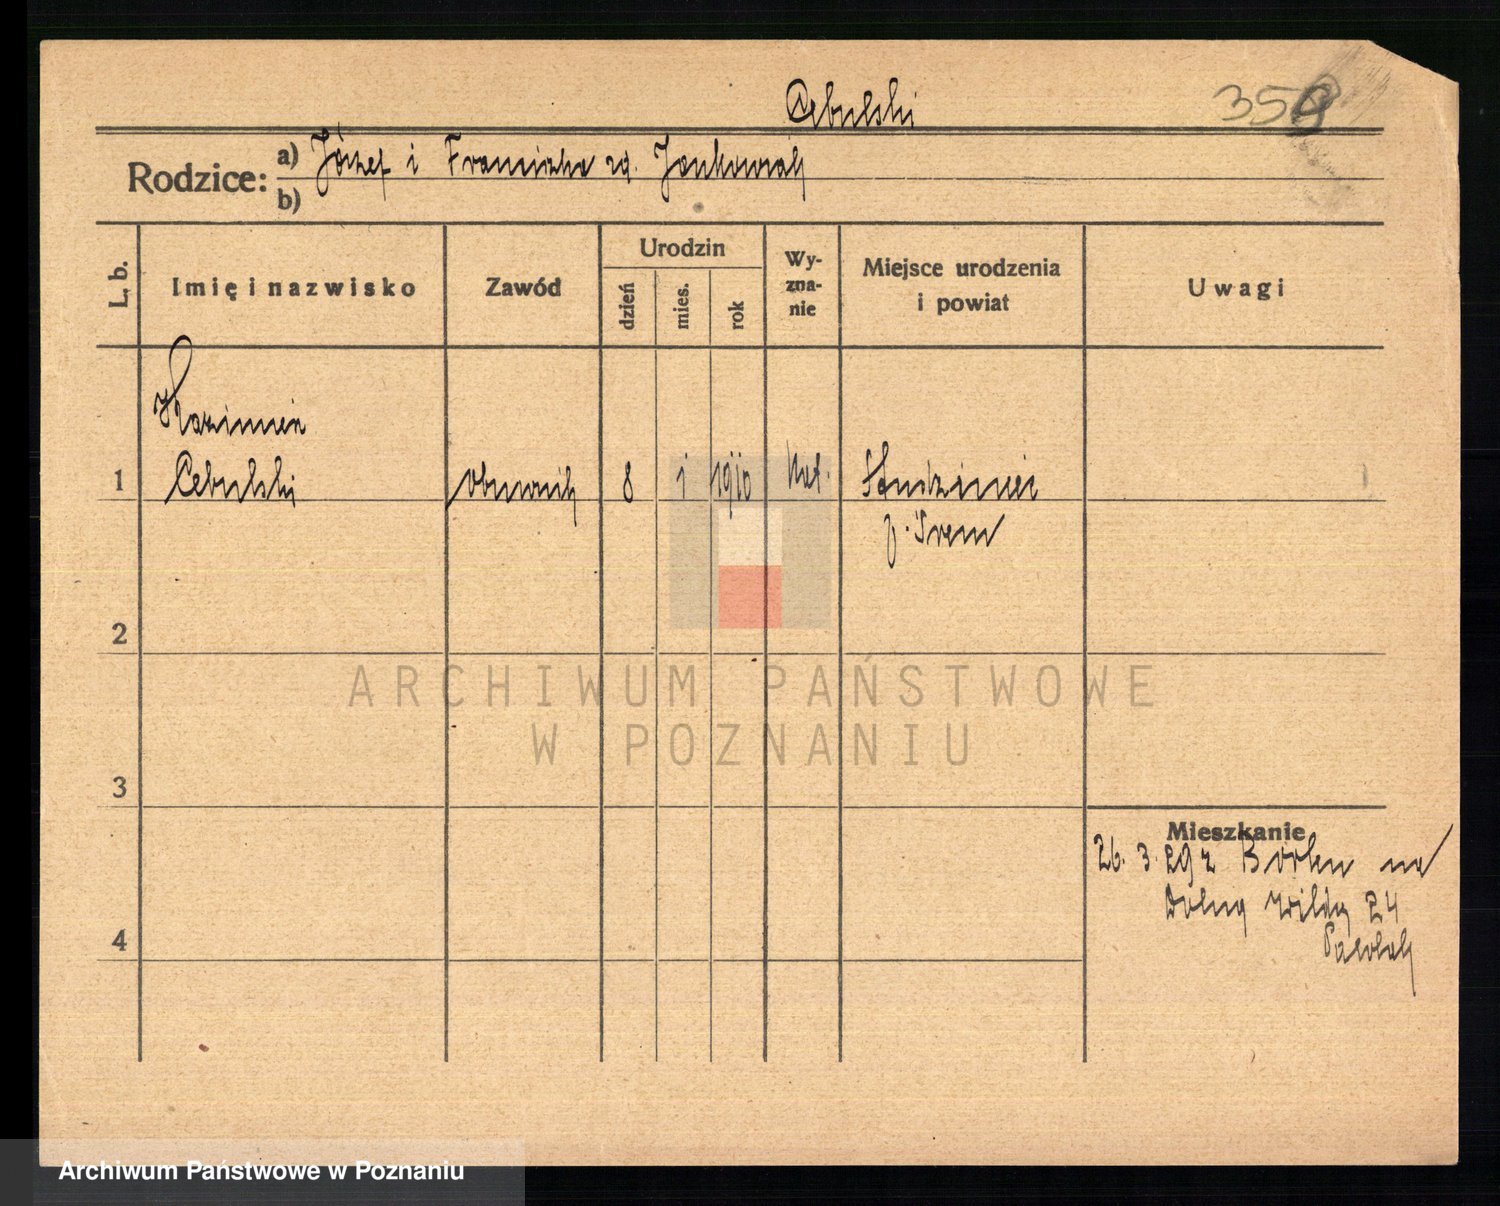 Cebulski
359
Rodzice: a) Józef i Franciszka zd. Jankowiak
b)
L. b.
Imię i nazwisko
Zawód
Urodzin
dzień
mies.
rok
Wy-
zna-
nie
Miejsce urodzenia
i powiat
Uwagi
Kazimierz
1 Cebulski obuwnik 8 1 1910 kat.
p. Śrem
2
ARCHIWUM PAŃSTWOWE
W POZNANIU
3
Mieszkanie
26. 3. 29 z Borku na
Dolną Wildę 24
4
Archiwum Państwowe w Poznaniu